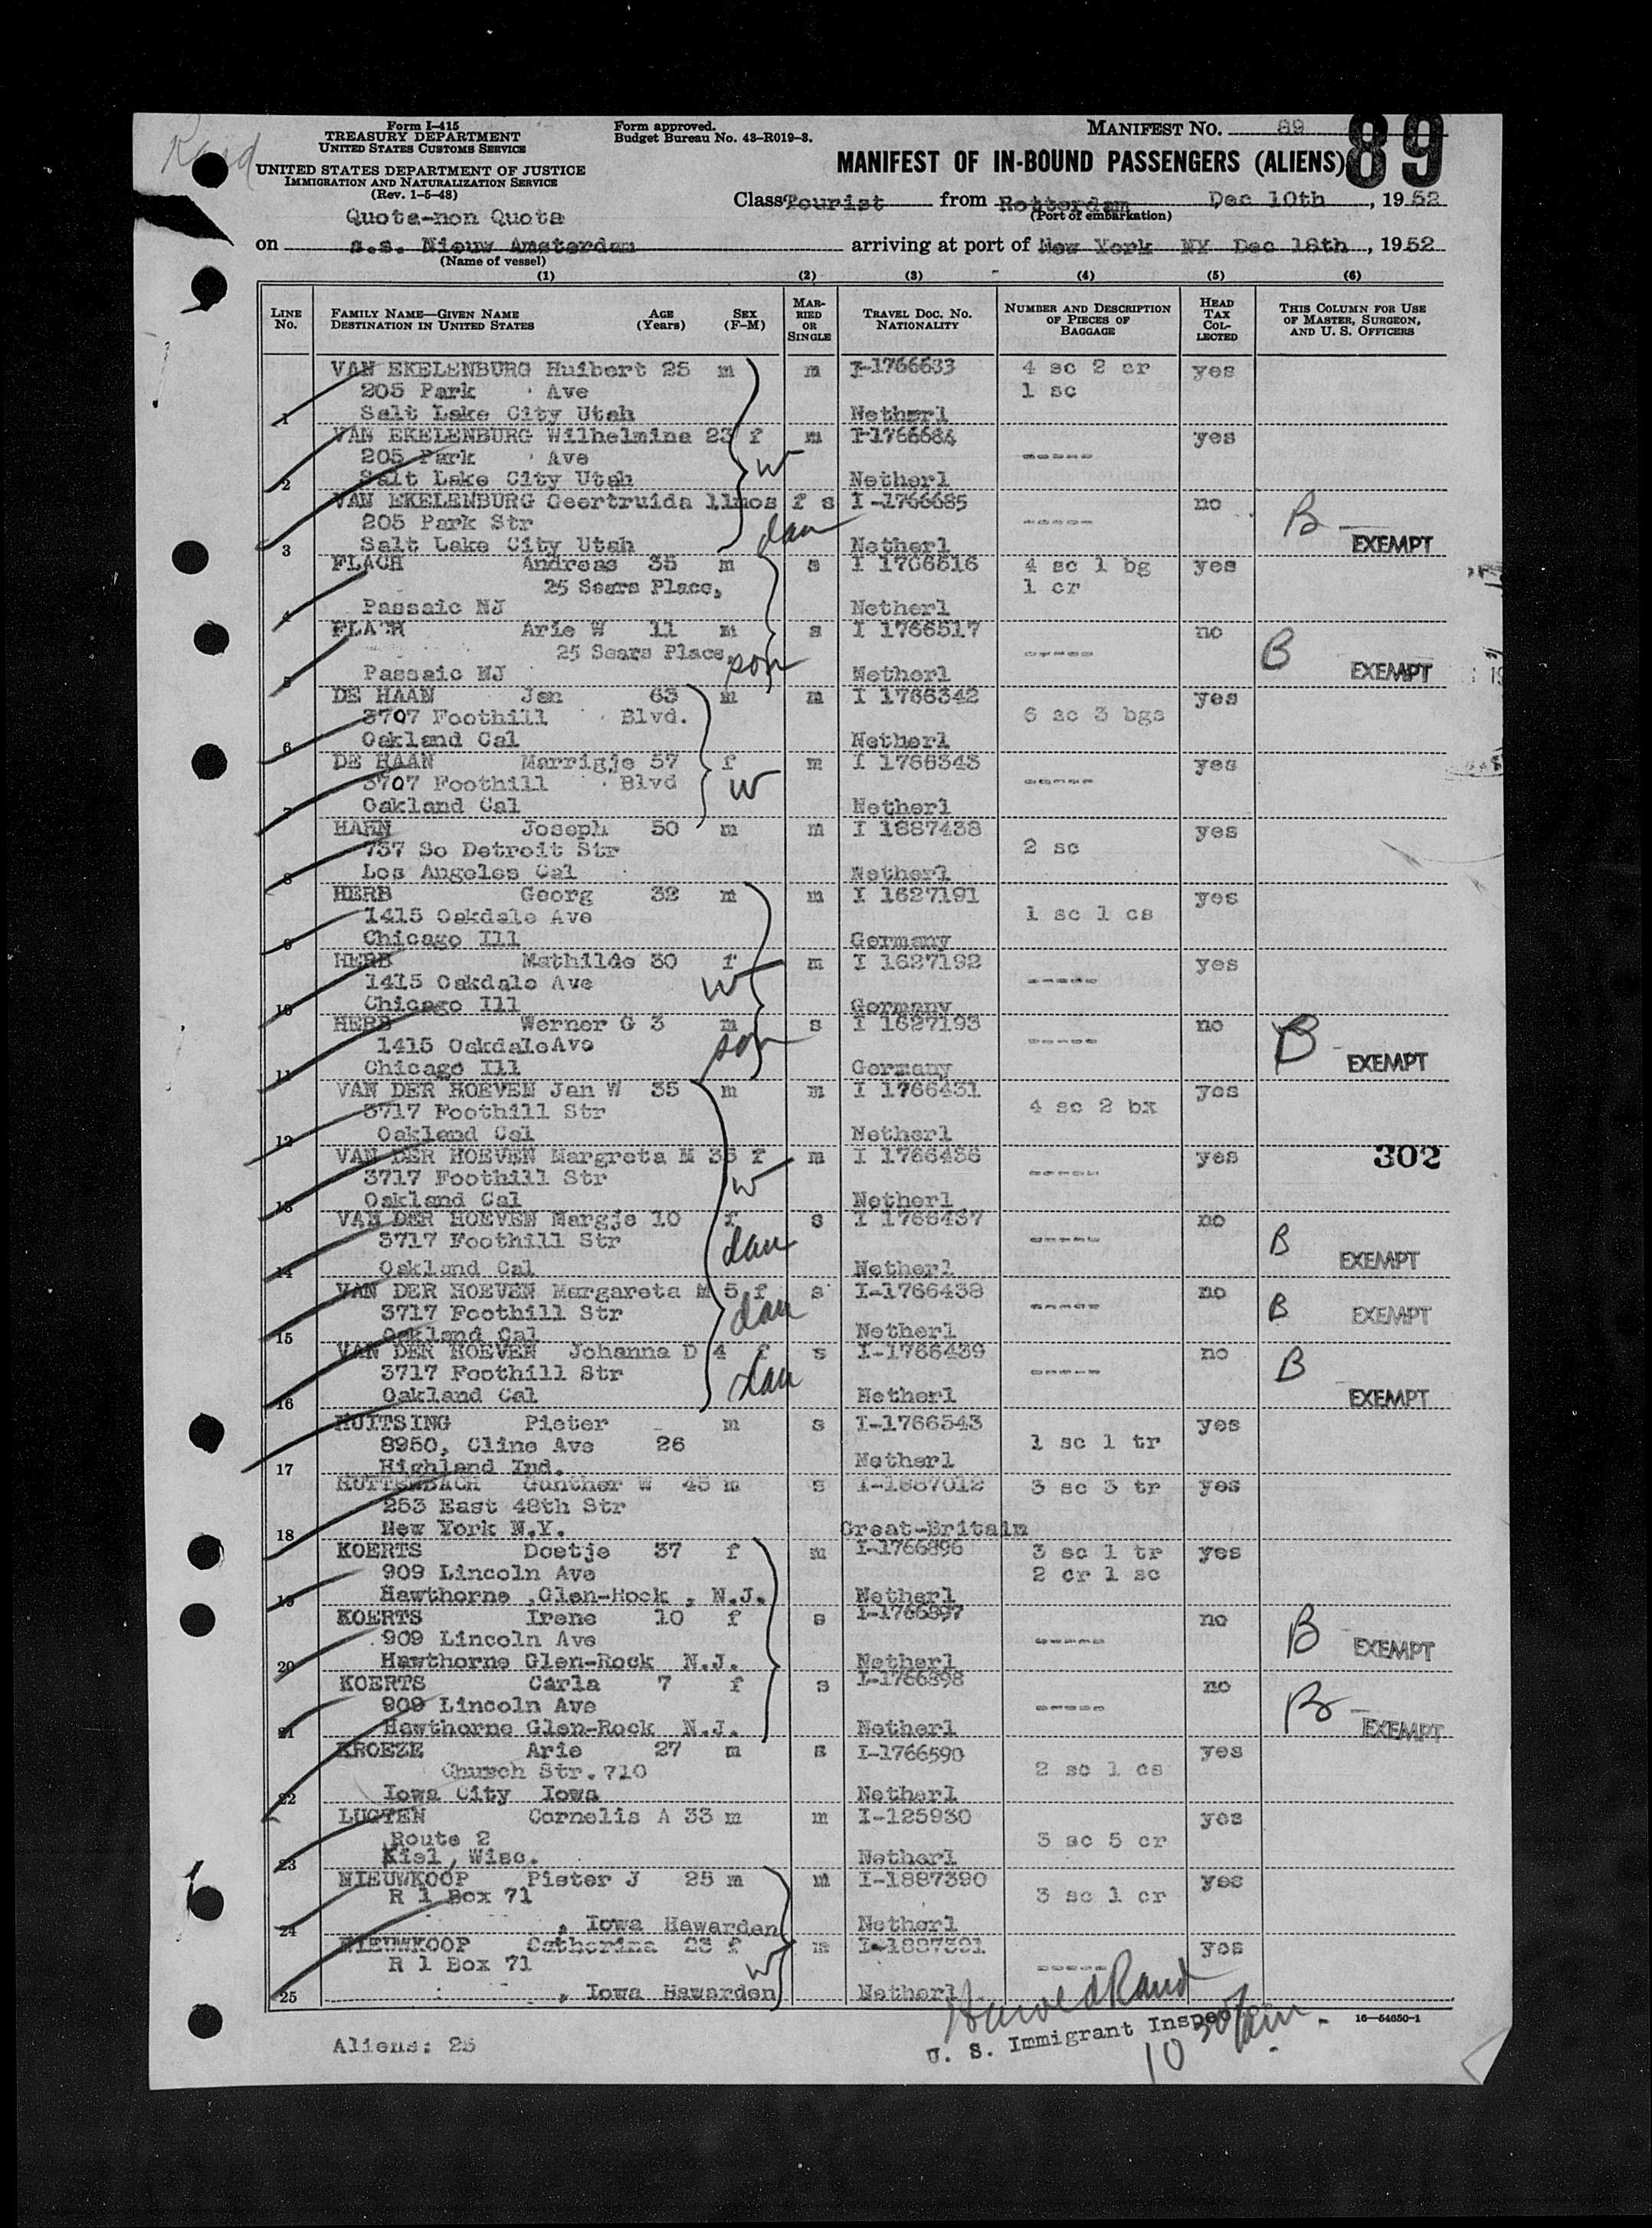 Rand
Form I-415
TREASURY DEPARTMENT
UNITED STATES CUSTOMS SERVICE
UNITED STATES DEPARTMENT OF JUSTICE
IMMIGRATION AND NATURALIZATION SERVICE
(Rev. 1-5-48)
Form approved.
Budget Bureau No. 43-R019-3.
MANIFEST NO. 89
89
MANIFEST OF IN-BOUND PASSENGERS (ALIENS)
Class Tourist from Rotterdam Dec 10th, 1952
(Port of embarkation)
Quota-non Quota
on s.s. Nieuw Amsterdam arriving at port of New York NY Dec 18th, 1952
(Name of vessel)
(1) (2) (3) (4) (5) (6)
LINE No. FAMILY NAME—GIVEN NAME DESTINATION IN UNITED STATES AGE (Years) SEX (F-M) MARRIED OR SINGLE TRAVEL DOC. NO. NATIONALITY NUMBER AND DESCRIPTION OF PIECES OF BAGGAGE HEAD TAX COLLECTED THIS COLUMN FOR USE OF MASTER, SURGEON, AND U. S. OFFICERS
VAN EKELENBURG Huibert 25 m m I-1766683 4 sc 2 cr yes
205 Park Ave 1 sc
1 Salt Lake City Utah Netherl
VAN EKELENBURG Wilhelmina 23 f m I-1766684 yes
205 Park Ave w -----
2 Salt Lake City Utah Netherl
VAN EKELENBURG Geertruida 11mos f s I-1766685 no
205 Park Str dau ----- B
3 Salt Lake City Utah Netherl EXEMPT
FLACH Andreas 35 m s I 1766516 4 sc 1 bg yes
25 Sears Place, 1 cr
4 Passaic NJ Netherl
FLACH Arie W 11 m s I 1766517 no
25 Sears Place, son ----- B
5 Passaic NJ Netherl EXEMPT
DE HAAN Jan 63 m m I 1766342 yes
3707 Foothill Blvd. 6 sc 3 bgs
6 Oakland Cal Netherl
DE HAAN Marrigje 57 f m I 1766343 yes
3707 Foothill Blvd w -----
7 Oakland Cal Netherl
HAHN Joseph 50 m m I 1887438 yes
737 So Detroit Str 2 sc
8 Los Angeles Cal Netherl
HERB Georg 32 m m I 1627191 yes
1415 Oakdale Ave 1 sc 1 cs
9 Chicago Ill Germany
HERB Mathilde 30 f m I 1627192 yes
1415 Oakdale Ave w -----
10 Chicago Ill Germany
HERB Werner G 3 m s I 1627193 no
1415 Oakdale Ave son ----- B
11 Chicago Ill Germany EXEMPT
VAN DER HOEVEN Jan W 35 m m I 1766431 yes
3717 Foothill Str 4 sc 2 bx
12 Oakland Cal Netherl
VAN DER HOEVEN Margreta M 35 f m I 1766436 yes 302
3717 Foothill Str w -----
13 Oakland Cal Netherl
VAN DER HOEVEN Margje 10 f s I 1766437 no
3717 Foothill Str dau ----- B
14 Oakland Cal Netherl EXEMPT
VAN DER HOEVEN Margareta M 5 f s I-1766438 no
3717 Foothill Str dau ----- B EXEMPT
15 Oakland Cal Netherl
VAN DER HOEVEN Johanna D 4 f s I-1766439 no
3717 Foothill Str dau ----- B
16 Oakland Cal Netherl EXEMPT
HUITSING Pieter m s I-1766543 yes
8950, Cline Ave 26 1 sc 1 tr
17 Highland Ind. Netherl
HUTTENBACH Gunther W 45 m s I-1887012 3 sc 3 tr yes
253 East 48th Str
18 New York N.Y. Great-Britain
KOERTS Doetje 37 f m I-1766896 3 sc 1 tr yes
909 Lincoln Ave 2 cr 1 sc
19 Hawthorne ,Glen-Rock , N.J. Netherl
KOERTS Irene 10 f s I-1766897 no
909 Lincoln Ave ----- B EXEMPT
20 Hawthorne Glen-Rock N.J. Netherl
KOERTS Carla 7 f s I-1766898 no
909 Lincoln Ave ----- B
21 Hawthorne Glen-Rock N.J. Netherl EXEMPT
KROEZE Arie 27 m s I-1766590 yes
Church Str. 710 2 sc 1 cs
22 Iowa City Iowa Netherl
LUGTEN Cornelis A 33 m m I-125930 yes
Route 2 3 sc 5 cr
23 Kiel, Wisc. Netherl
NIEUWKOOP Pieter J 25 m m I-1887390 yes
R 1 Box 71 3 sc 1 cr
24 , Iowa Hawarden Netherl
NIEUWKOOP Catharina 23 f m I-1887391 yes
R 1 Box 71 w -----
25 , Iowa Hawarden Netherl
Harold Rand
U. S. Immigrant Inspec
10 30 am.
16—54650-1
Aliens: 25